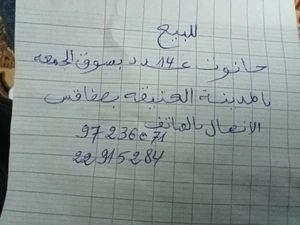 للبيع
حانوت ع 14 دد بسوق الجمعه
بالمدينة العتيقة بصفاقس
الاتصال بالهاتف
97236071
22915284